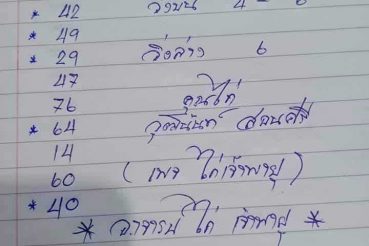 * 42 วิ่งบน 4 - 6
* 49
* 29 วิ่งล่าง 6
47
76 คุณไก่
* 64 วุฒินันท์ สอนศรี
14
60 (เพจ ไก่เจ้าพายุ)
* 40
* อาจารย์ ไก่ เจ้าพายุ *